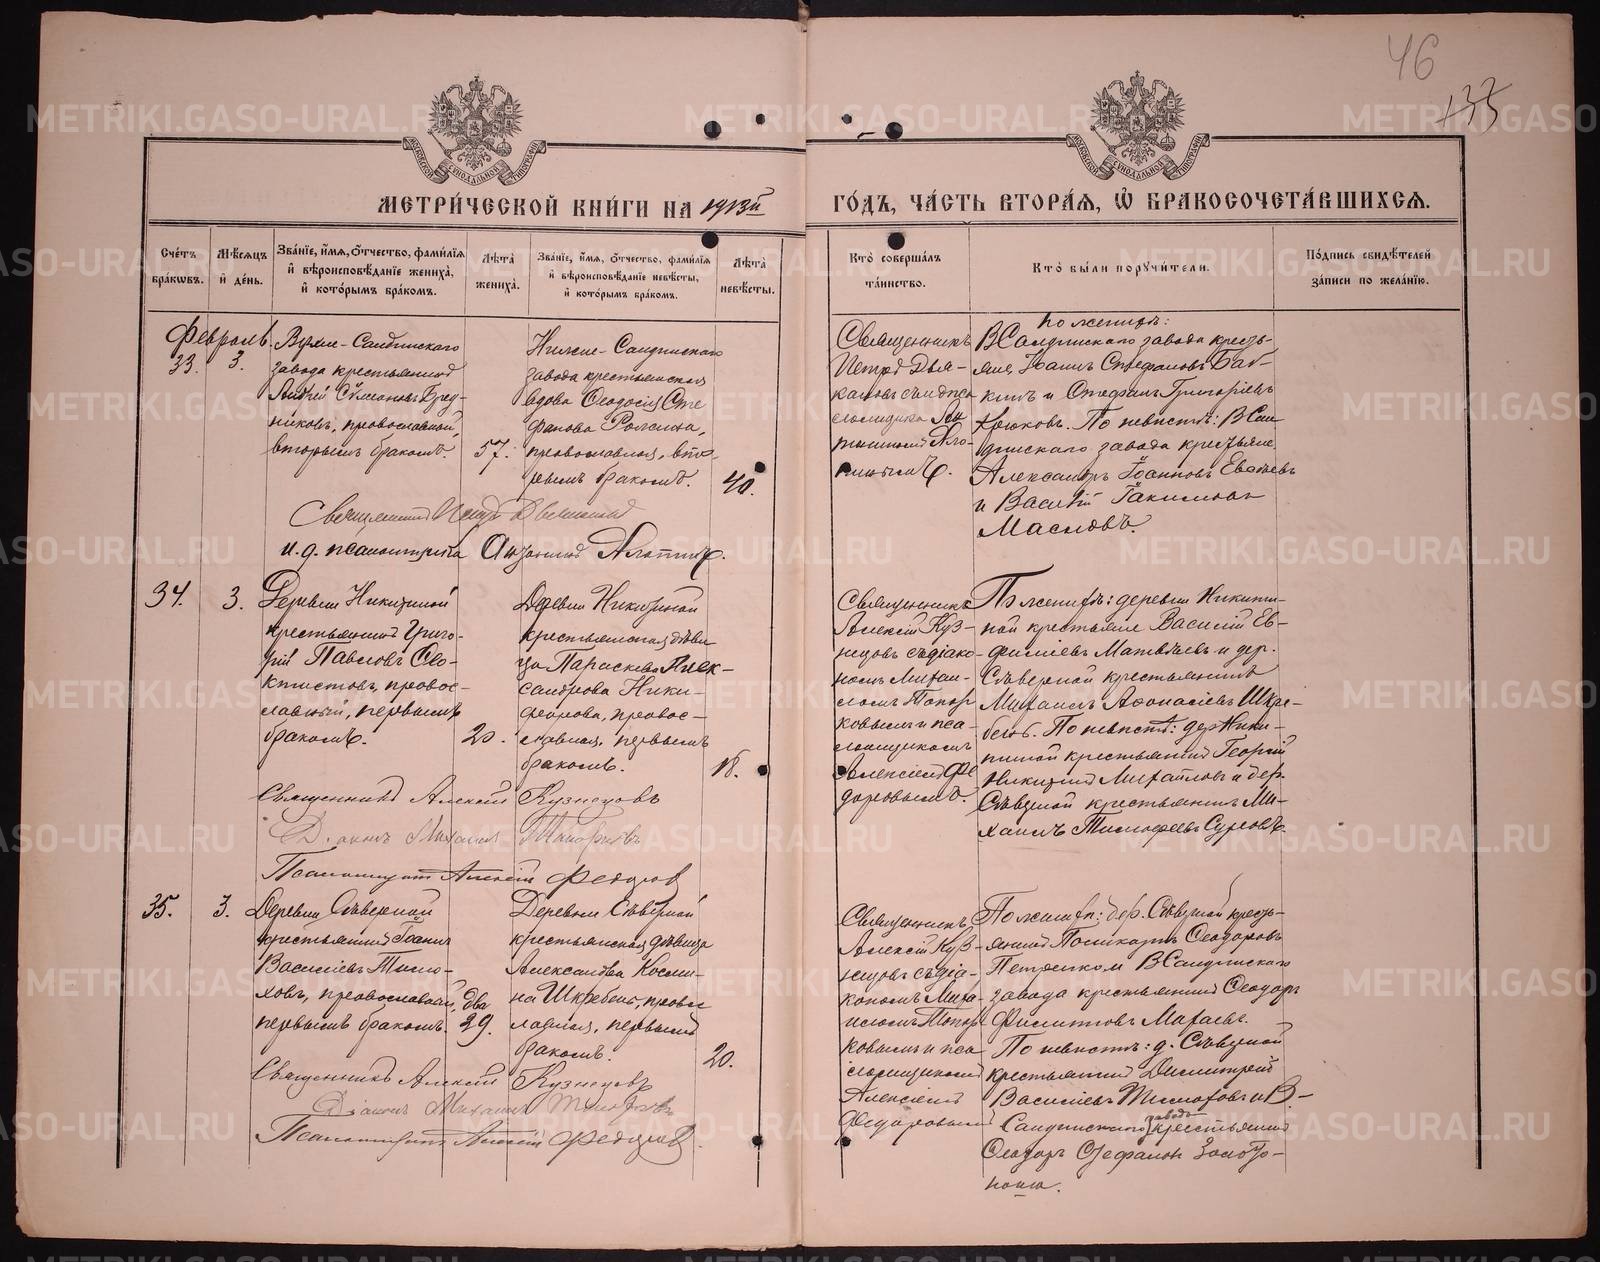 46
135
МЕТРИ́ЧЕСКОЙ КНИ́ГИ НА 1913й ГО́ДЪ, ЧА́СТЬ ВТОРА́Я, Ѡ БРАКОСОЧЕТА́ВШИХСЯ.
Сче́тъ бра́ковъ.
Мѣ́сяцъ и́ де́нь.
Зва́нїе, и́мя, ѻ́тчество, фами́лїя и́ вѣроисповѣ́данїе жениха̀, и́ кото́рымъ бра́комъ.
Лѣ́та жениха̀.
Зва́нїе, и́мя, ѻ́тчество, фами́лїя и́ вѣроисповѣ́данїе невѣ́сты, и́ кото́рымъ бра́комъ.
Лѣ́та невѣ́сты.
Кто̀ соверша́лъ та́инство.
Кто̀ бы́ли порꙋчи́тели.
По́дпись свидѣ́телей за́писи по жела́нїю.
Февраль
33.
3.
Верхне-Салдинскаго
завода крестьянинъ
Андрей Сѵмеоновъ Бред-
никовъ, православной,
вторымъ бракомъ
57.
Нижне-Салдинскаго
завода крестьянская
вдова Ѳеодосія Сте
фанова Рожина,
православная, вто-
рымъ бракомъ.
40.
Священникъ
Петръ
съ
псаломщика
По женихѣ:
В Салдинскаго завода кресть-
яне, Іоаннъ Стефановъ Баб-
кинъ и Стефанъ Григоріевъ
Крюковъ. По невѣстѣ: В Сал
динскаго завода крестьяне
Александръ Іоанновъ Евстѣевъ
и Василій Іакимовъ
Масловъ.
Священникъ Петръ
и. д. псаломщика
34.
3.
Деревни Никитиной
крестьянинъ Григо-
рій Павловъ Ѳео-
ктистовъ, правос-
лавный, первымъ
бракомъ.
20.
Деревни Никитиной
крестьянская дѣви-
ца Параскева Алек-
сандрова Ники-
форова, правос-
лавная, первымъ
бракомъ.
18.
Священникъ
Алексій Куз-
нецовъ съ діако-
номъ Михаи-
ломъ Топор
ковымъ и пса-
ломщикомъ
Алексіемъ Ѳе
доровымъ.
По женихѣ: деревни Никити-
ной крестьяне Василій Ев-
фиміевъ Матвѣевъ и дер.
Сѣверной крестьянинъ
Михаилъ Аѳанасіевъ Шкре-
бень. По невѣстѣ: дер Ники-
тиной крестьянинъ Георгій
Никитинъ Михайловъ и дер.
Сѣверной крестьянинъ Ми-
хаилъ Тимофеевъ Суровъ.
Священникъ Алексій Кузнецовъ
Діаконъ Михаилъ Топорковъ
Псаломщикъ Алексій Ѳедоровъ
35.
3.
Деревни Сѣверной
крестьянинъ Іоаннъ
Василіевъ Тимо-
ховъ, православный,
первымъ бракомъ.
29.
Деревни Сѣверной
крестьянская дѣвица
Александра Косми-
на Шкребень, право
лавная, первымъ
бракомъ.
20.
Священникъ
Алексій Куз-
нецовъ съ діа-
кономъ Миха-
иломъ Топор
ковымъ и пса
ломщикомъ
Алексіемъ
Ѳедоровымъ
По женихѣ: дер. Сѣверной кресть-
янинъ Поликарпъ Ѳеодоровъ
Петренко и В Салдинскаго
завода крестьянинъ Ѳеодоръ
Филипповъ Махаевъ.
По невѣстѣ: д. Сѣверной
крестьянинъ Димитрій
Василіевъ Тимоховъ и В.-
Салдинскаго завода крестьянинъ
Ѳеодоръ Стефановъ Золото-
Священникъ Алексій Кузнецовъ
Діаконъ Михаилъ Топорковъ
Псаломщикъ Алексій Ѳедоровъ.
METRIKI.GASO-URAL.RU